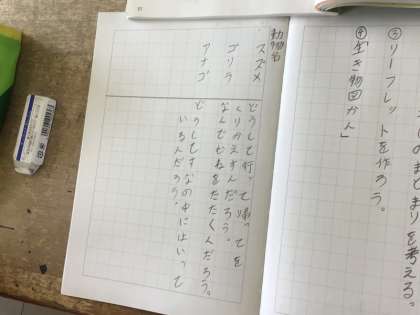 のまとまりを考える。
③リーフレットを作ろう。
④「生き物図かん」
動物名
スズメ
どうして行って帰ってを
くりかえすんだろう。
ゴリラ
なんでむねをたたくんだろう。
アナゴ
どうしてすなの中にはいって
いるんだろう。